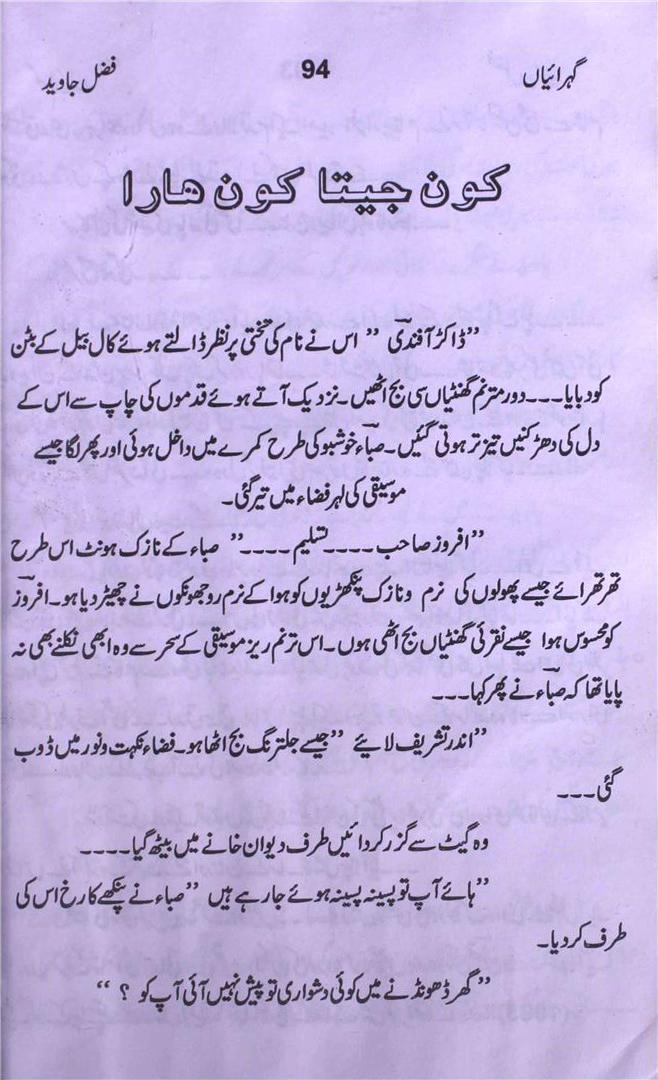 گہرائیاں 94 فضل جاوید
کون جیتا کون ھارا
”ڈاکڑ آفندی “ اس نے نام کی تختی پر نظر ڈالتے ہوئے کال بیل کے بٹن
کو دبایا۔۔۔دور مترنم گھنٹیاں سی بج اٹھیں۔نزدیک آتے ہوئے قدموں کی چاپ سے اس کے
دل کی دھڑکنیں تیز تر ہوتی گئیں۔صباء خوشبو کی طرح کمرے میں داخل ہوئی اور پھر لگا جیسے
موسیقی کی لہر فضاء میں تیر گئی۔
”افروز صاحب ۔۔۔۔تسلیم ۔۔۔۔“ صباء کے نازک ہونٹ اس طرح
تھرتھرائے جیسے پھولوں کی نرم و نازک پنکھڑیوں کو ہوا کے نرم رو جھونکوں نے چھیڑ دیا ہو۔افروز
کو محسوس ہوا جیسے نقرئی گھنٹیاں بج اٹھی ہوں۔اس ترنم ریز موسیقی کے سحر سے وہ ابھی نکلنے بھی نہ
پایا تھا کہ صباء نے پھر کہا۔۔۔
”اندر تشریف لائیے “جیسے جلترنگ بج اٹھا ہو۔فضاء نکہت و نور میں ڈوب
گئی۔۔۔
وہ گیٹ سے گزر کر دائیں طرف دیوان خانے میں بیٹھ گیا۔۔۔۔
”ہائے آپ تو پسینہ پسینہ ہوئے جارہے ہیں “صباء نے پنکھے کا رخ اس کی
طرف کردیا۔
”گھر ڈھونڈنے میں کوئی دشواری تو پیش نہیں آئی آپ کو ؟ “